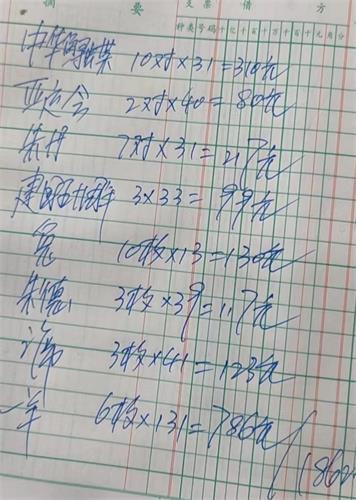 摘 要 支票 借 方
种类 号码 十 亿 千 百 十 万 千 百 十 元 角 分
中华 10对×31=310元
亚运会 2对×40=80元
7对×31=217元
建 3×33=99元
10枚×13=130元
朱德 3枚×39=117元
3枚×41=123元
羊 6枚×131=786元
1862